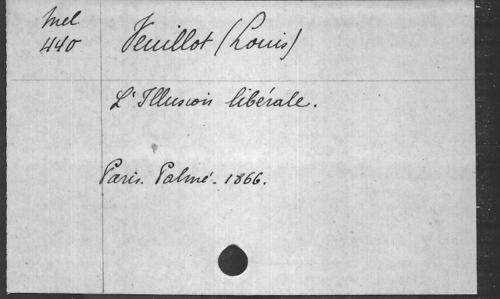 Mel
440
Veuillot (Louis)
L'Illusion libérale.
Paris. Palmé. 1866.